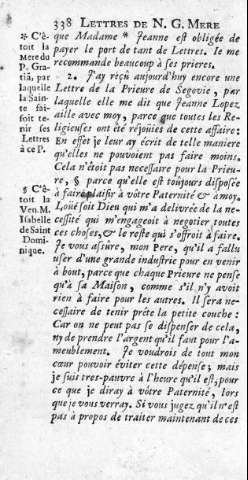 338 LETTRES DE N. G. MERE
que Madame * Jeanne est obligée de
payer le port de tant de Lettres. Je me
recommande beaucoup à ses prieres.
2. J'ay reçû aujourd'huy encore une
Lettre de la Prieure de Segovie, par
laquelle elle me dit que Jeanne Lopez
aille avec moy, parce que toutes les Re-
ligieuses ont été réjoüies de cette affaire:
En effet je leur ay écrit de telle maniere
qu'elles ne pouvoient pas faire moins.
Cela n'étoit pas necessaire pour la Prieu-
re, § parce qu'elle est toûjours disposée
à faire plaisir à vôtre Paternité & à moy.
Loüé soit Dieu qui m'a delivrée de la ne-
cessité qui m'engageoit à negotier toutes
ces choses, & le reste qui s'offroit à faire.
Je vous assure, mon Pere, qu'il a fallu
user d'une grande industrie pour en venir
à bout, parce que chaque Prieure ne pense
qu'à sa Maison, comme s'il n'y avoit
rien à faire pour les autres. Il sera ne-
cessaire de tenir prête la petite couche:
Car on ne peut pas se dispenser de cela,
ny de prendre l'argent qu'il faut pour l'a-
meublement. Je voudrois de tout mon
cœur pouvoir éviter cette dépense; mais
je suis tres-pauvre à l'heure qu'il est, pour
ce que je diray à vôtre Paternité, lors
que je vous verray. Si vous jugez qu'il n'est
pas à propos de traiter maintenant de ces
* C'é-
toit la
Mere du
P. Gra-
tiã, par
laquelle
la Sain-
te fai-
soit te-
nir ses
Lettres
à ce P.
§ C'é-
toit la
Ven. M.
Isabelle
de Saint
Domi-
nique.